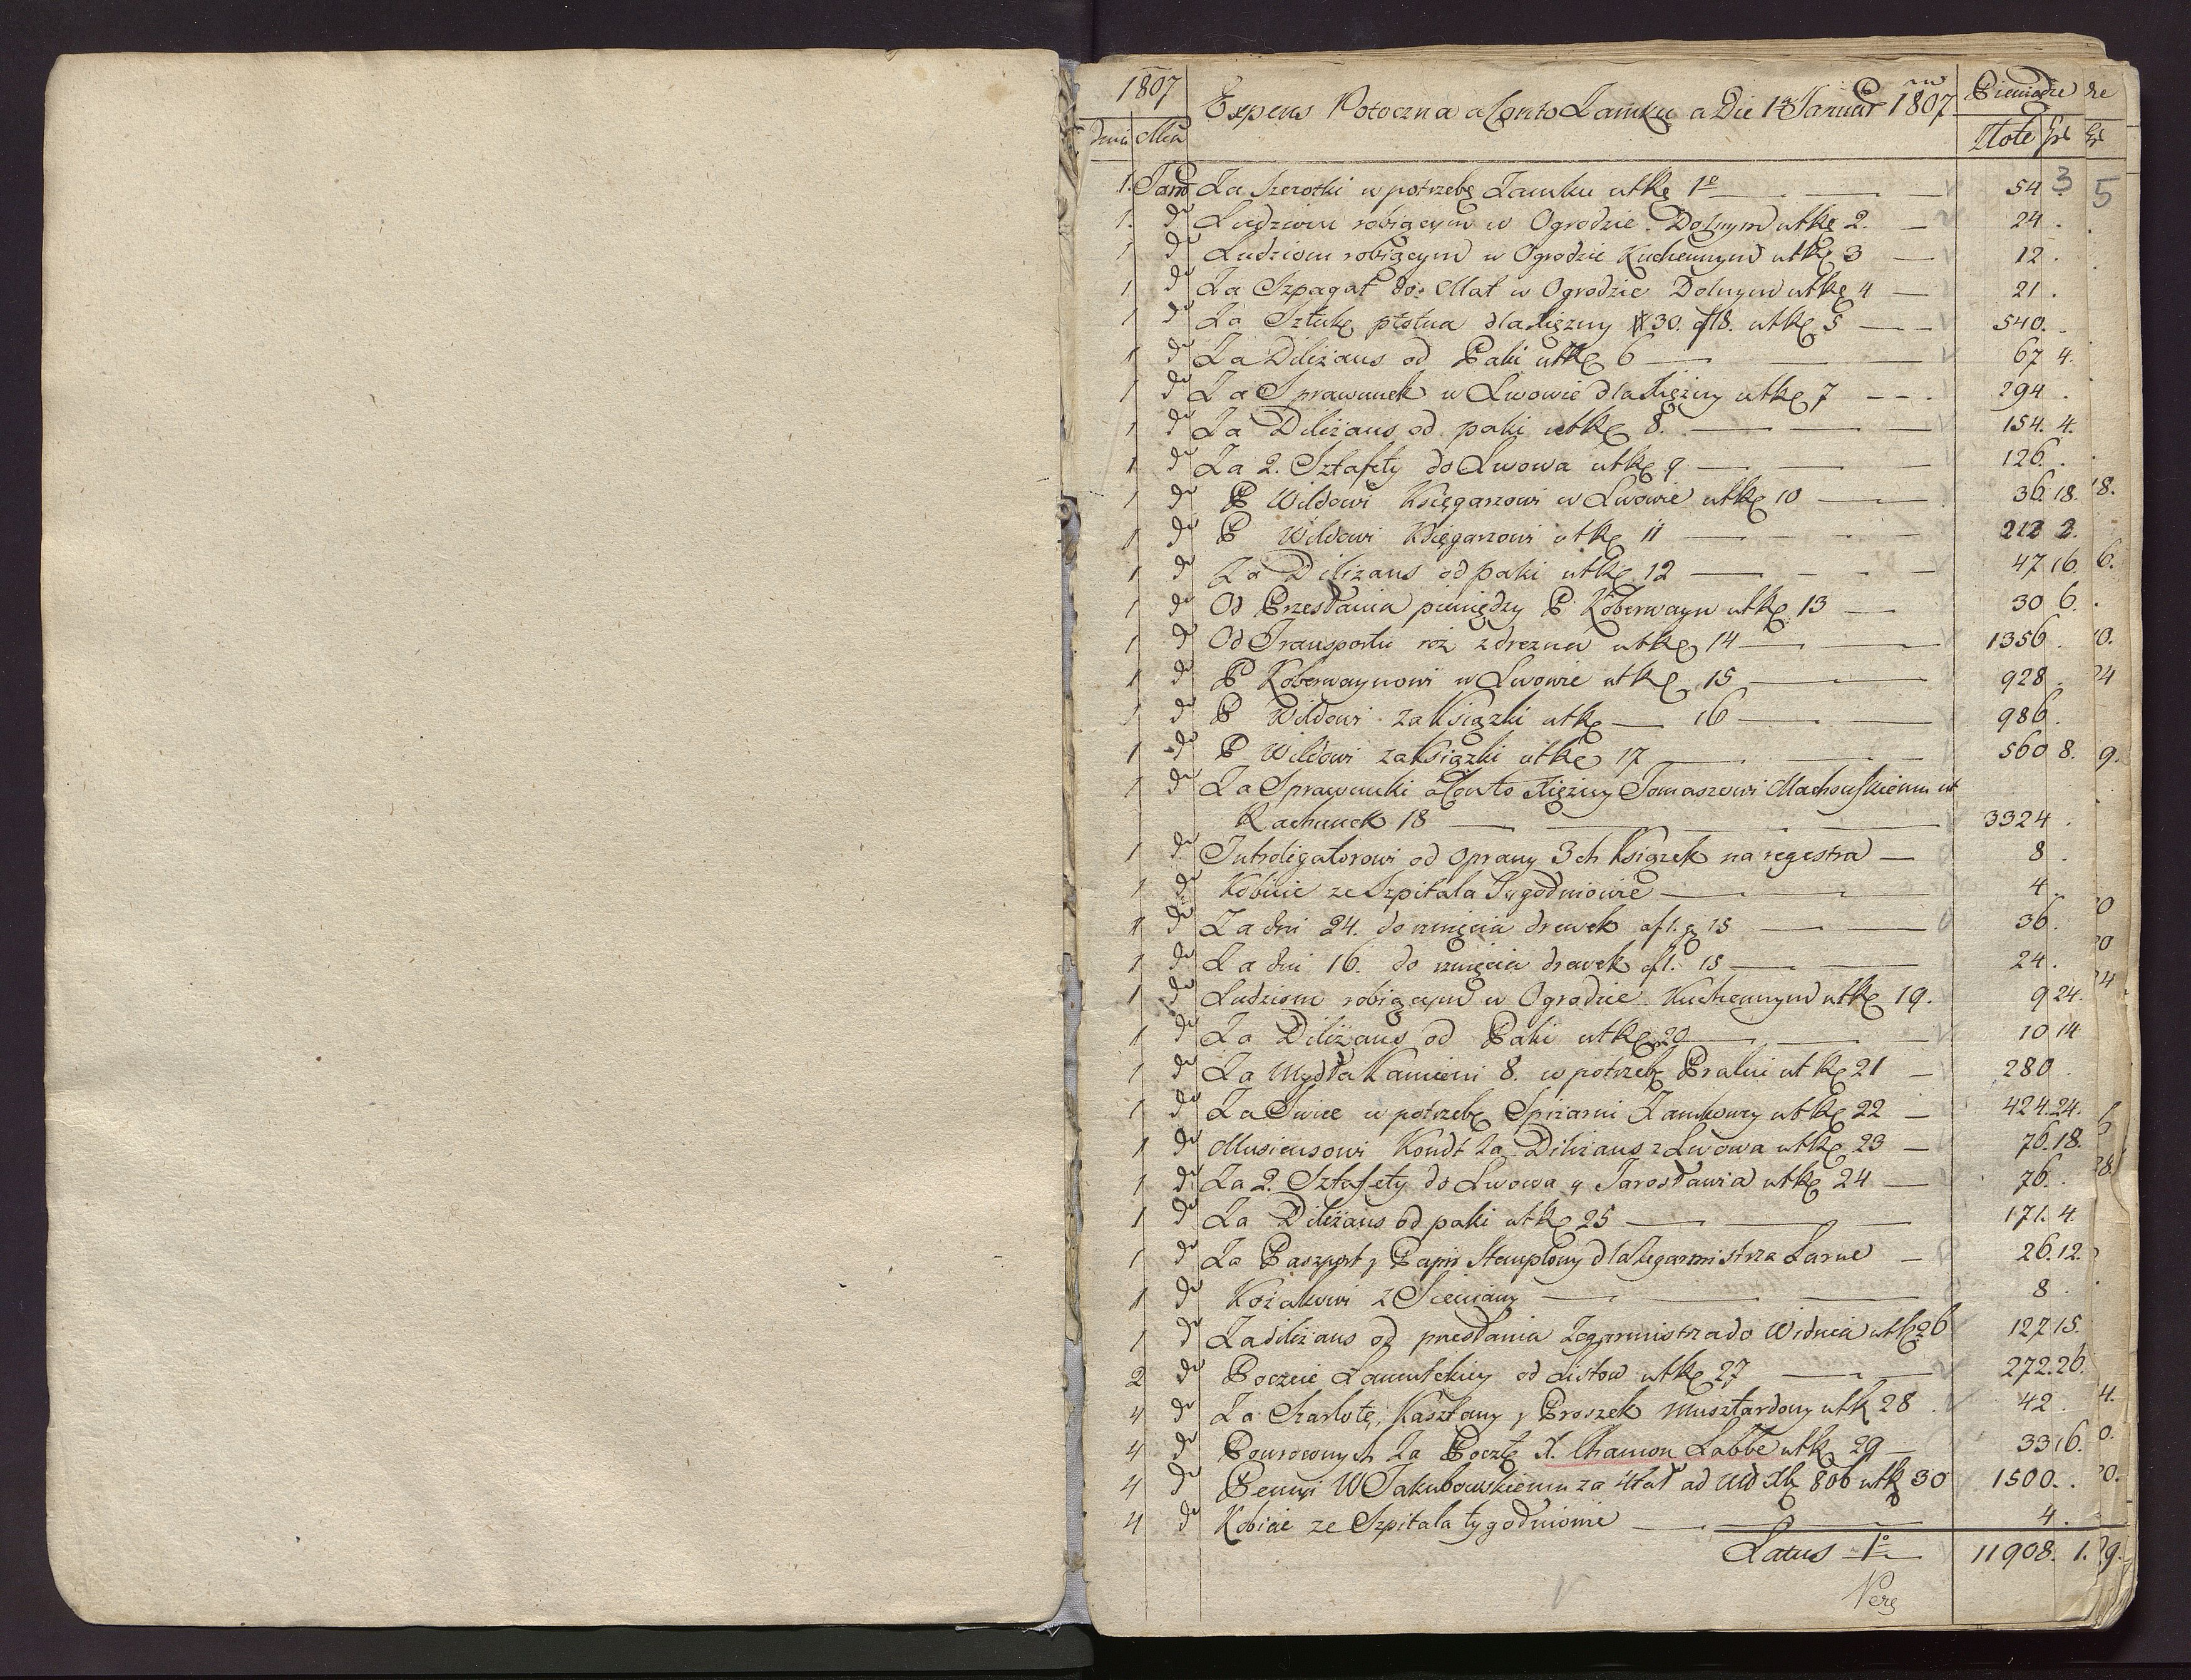 1807
Expens Potoczna a Conto Zamku a Die 1ma Januar 1807
Pieniądze
dnia Mca
Złote gr
1. Janu Za Szczotki w potrzebę Zamku ut kę 1o 54 3
1. do Ludziom robiącym w Ogrodzie Dolnym ut kę 2. 24 .
1 do Ludziom robiącym w Ogrodzie Kuchennym ut kę 3 12 .
1 do Za Szpagat do Mat w Ogrodzie Dolnym ut kę 4 21 .
1 do Za Sztukę płotna dla Xiężny # 30. af 18. ut kę 5 540. .
1 do Za Diliżans od Paki ut kę 6 67 4.
1 do Za Sprawunek w Lwowie dla Xiężny ut kę 7 294 .
1 do Za Diliżans od paki ut kę 8. 154. 4.
1 do Za 2. Sztafety do Lwowa ut kę 9 126. .
1 do P Wildowi Księgarzowi w Lwowie ut kę 10 36. 18.
1 do P Wildowi Księgarzowi ut kę 11 212 2.
1 do Za Diliżans od paki ut kę 12 47 16
1 do Od Przesłania pieniędzy P Köberwayn ut kę 13 30 6.
1 do Od Transportu roż z drezna ut kę 14 1356 .
1 do P Köberwaynowi w Lwowie ut kę 15 928 .
1 do P Wildowi za Książki ut kę 16 986 .
1 do P Wildowi za Książki ut kę 17 560 8.
1 do Za Sprawunki a Conto Xiężny Tomaszowi Machowskiemu ut
Rachunek 18 3324 .
1 do Introligatorowi od Oprawy 3ch Książek na regestra 8 .
1 do Kobiecie ze Szpitala Tygodniowie 4 .
1 do Za dni 24. do rznięcia drewek af 1. g 15 36 .
1 do Za dni 16. do rznięcia drewek af 1. 15 24 .
1 do Ludziom robiącym w Ogrodzie Kuchennym ut kę 19. 9 24.
1 do Za Diliżans od Paki ut kę 20 10 14
1 do Za Mydła Kamieni 8. w potrzebę Pralni ut kę 21 280 .
1 do Za Swice w potrzebę Spiżarni Zamkowey ut kę 22 424. 24.
1 do Musiensowi Kondt Za Diliżans z Lwowa ut kę 23 76. 18.
1 do Za 2. Sztafety do Lwowa y Jarosławia ut kę 24 76. .
1 do Za Diliżans od paki ut kę 25 171. 4.
1 do Za Paszport y Papir Stemplowy dla Zegarmistrza Larue 26. 12.
1 do Kozakowi z Sieniawy 8 .
1 do Za diliżans od przesłania Zegarmistrza do Widnia ut kę 26 127 15.
2 do Poczcie Łancutskiey od Listow ut kę 27 272. 26.
4 do Za Szarlotę, Kasztany y Proszek Musztardowy ut kę 28 42 .
4 do Powroconych Za Pocztę X. Chamon Labbe ut kę 29 33 16.
4 do Pensyi W Jakubowskiemu za 4tał ad 806 ut kę 30 1500. .
4 do Kobiecie ze Szpitala tygodniowie 4 .
Latus 1o 11908. 1.
Verę